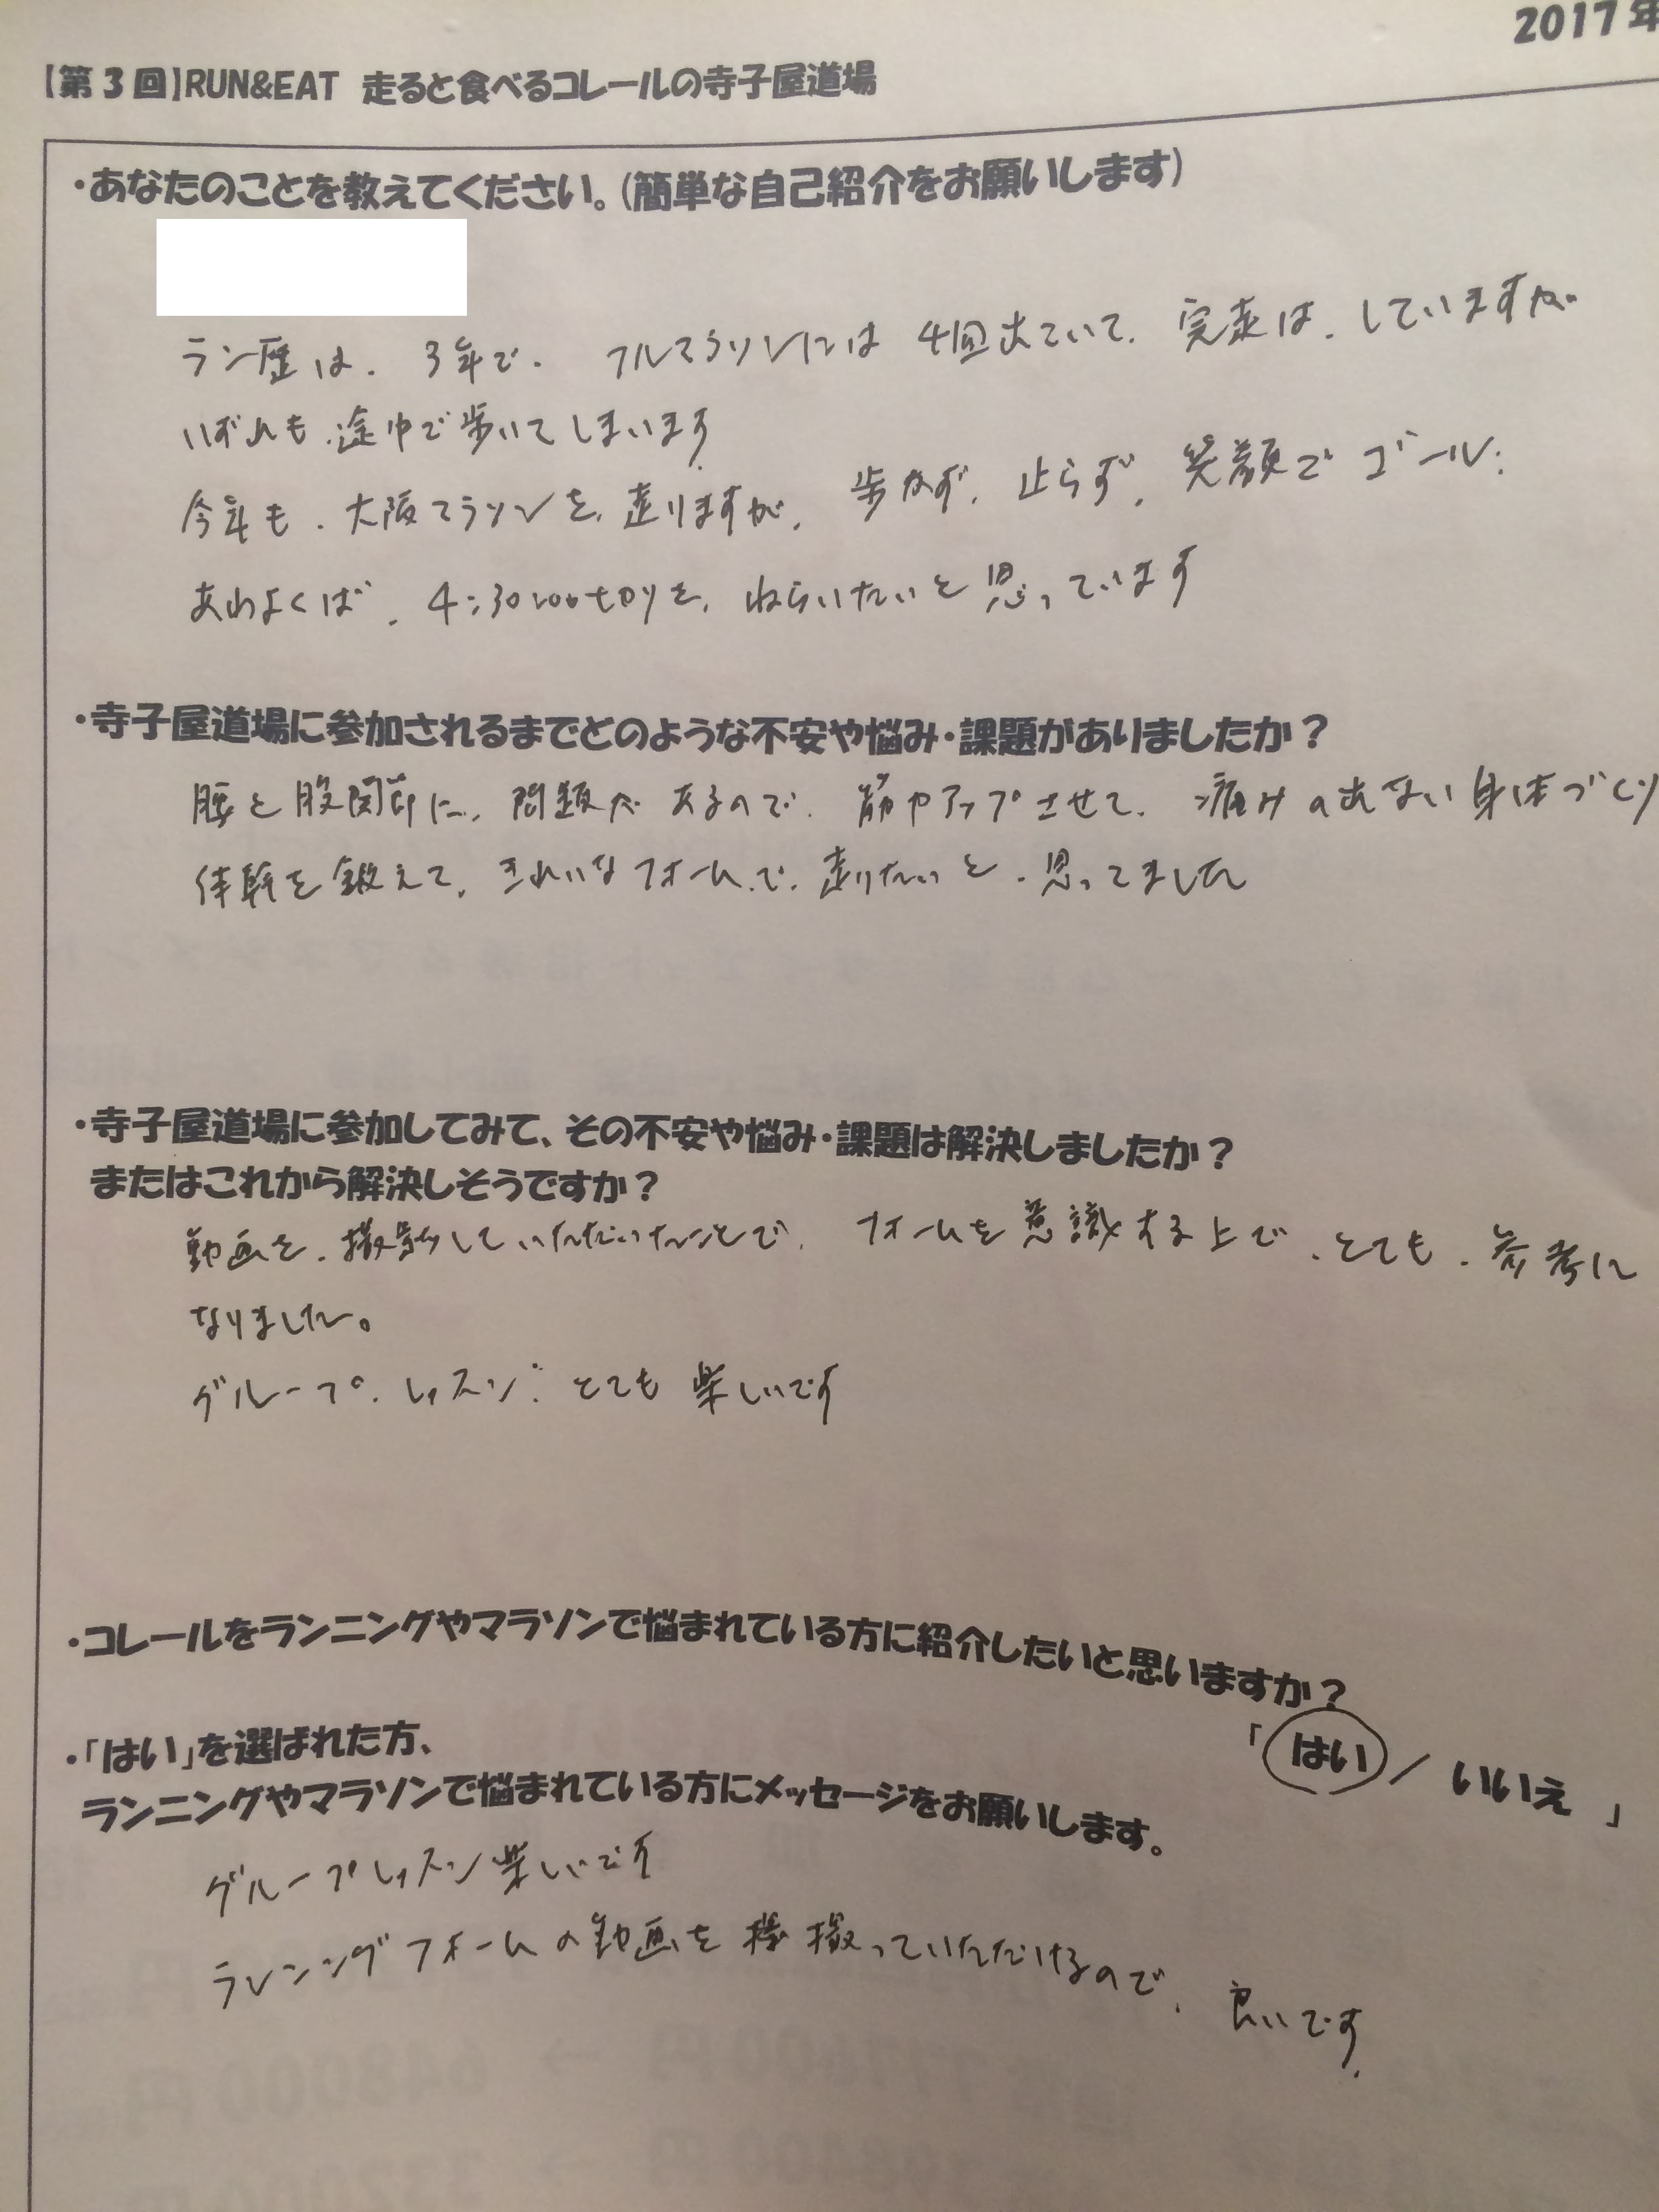 2017年
【第3回】RUN&EAT 走ると食べるコレールの寺子屋道場
・あなたのことを教えてください。(簡単な自己紹介をお願いします)
ラン歴は、3年で、フルマラソンには4回出ていて、完走は、していますが
いずれも、途中で歩いてしまいます
今年も、大阪マラソンを、走りますが、歩かず、止らず、笑顔でゴール:
あわよくば、4:30'00"切りを、ねらいたいと思っています
・寺子屋道場に参加されるまでどのような不安や悩み・課題がありましたか?
腰と股関節に、問題があるので、筋力アップさせて、痛みの出ない身体づくり
体幹を鍛えて、きれいなフォームで、走りたいと、思ってました
・寺子屋道場に参加してみて、その不安や悩み・課題は解決しましたか?
またはこれから解決しそうですか?
動画を、撮影していただいたことで、フォームを意識する上で、とても、参考に
なりました。
グループ、レッスン:とても楽しいです
・コレールをランニングやマラソンで悩まれている方に紹介したいと思いますか?
「はい/いいえ」
・「はい」を選ばれた方、
ランニングやマラソンで悩まれている方にメッセージをお願いします。
グループレッスン楽しいです
ランニングフォームの動画を撮っていただけるので、良いです